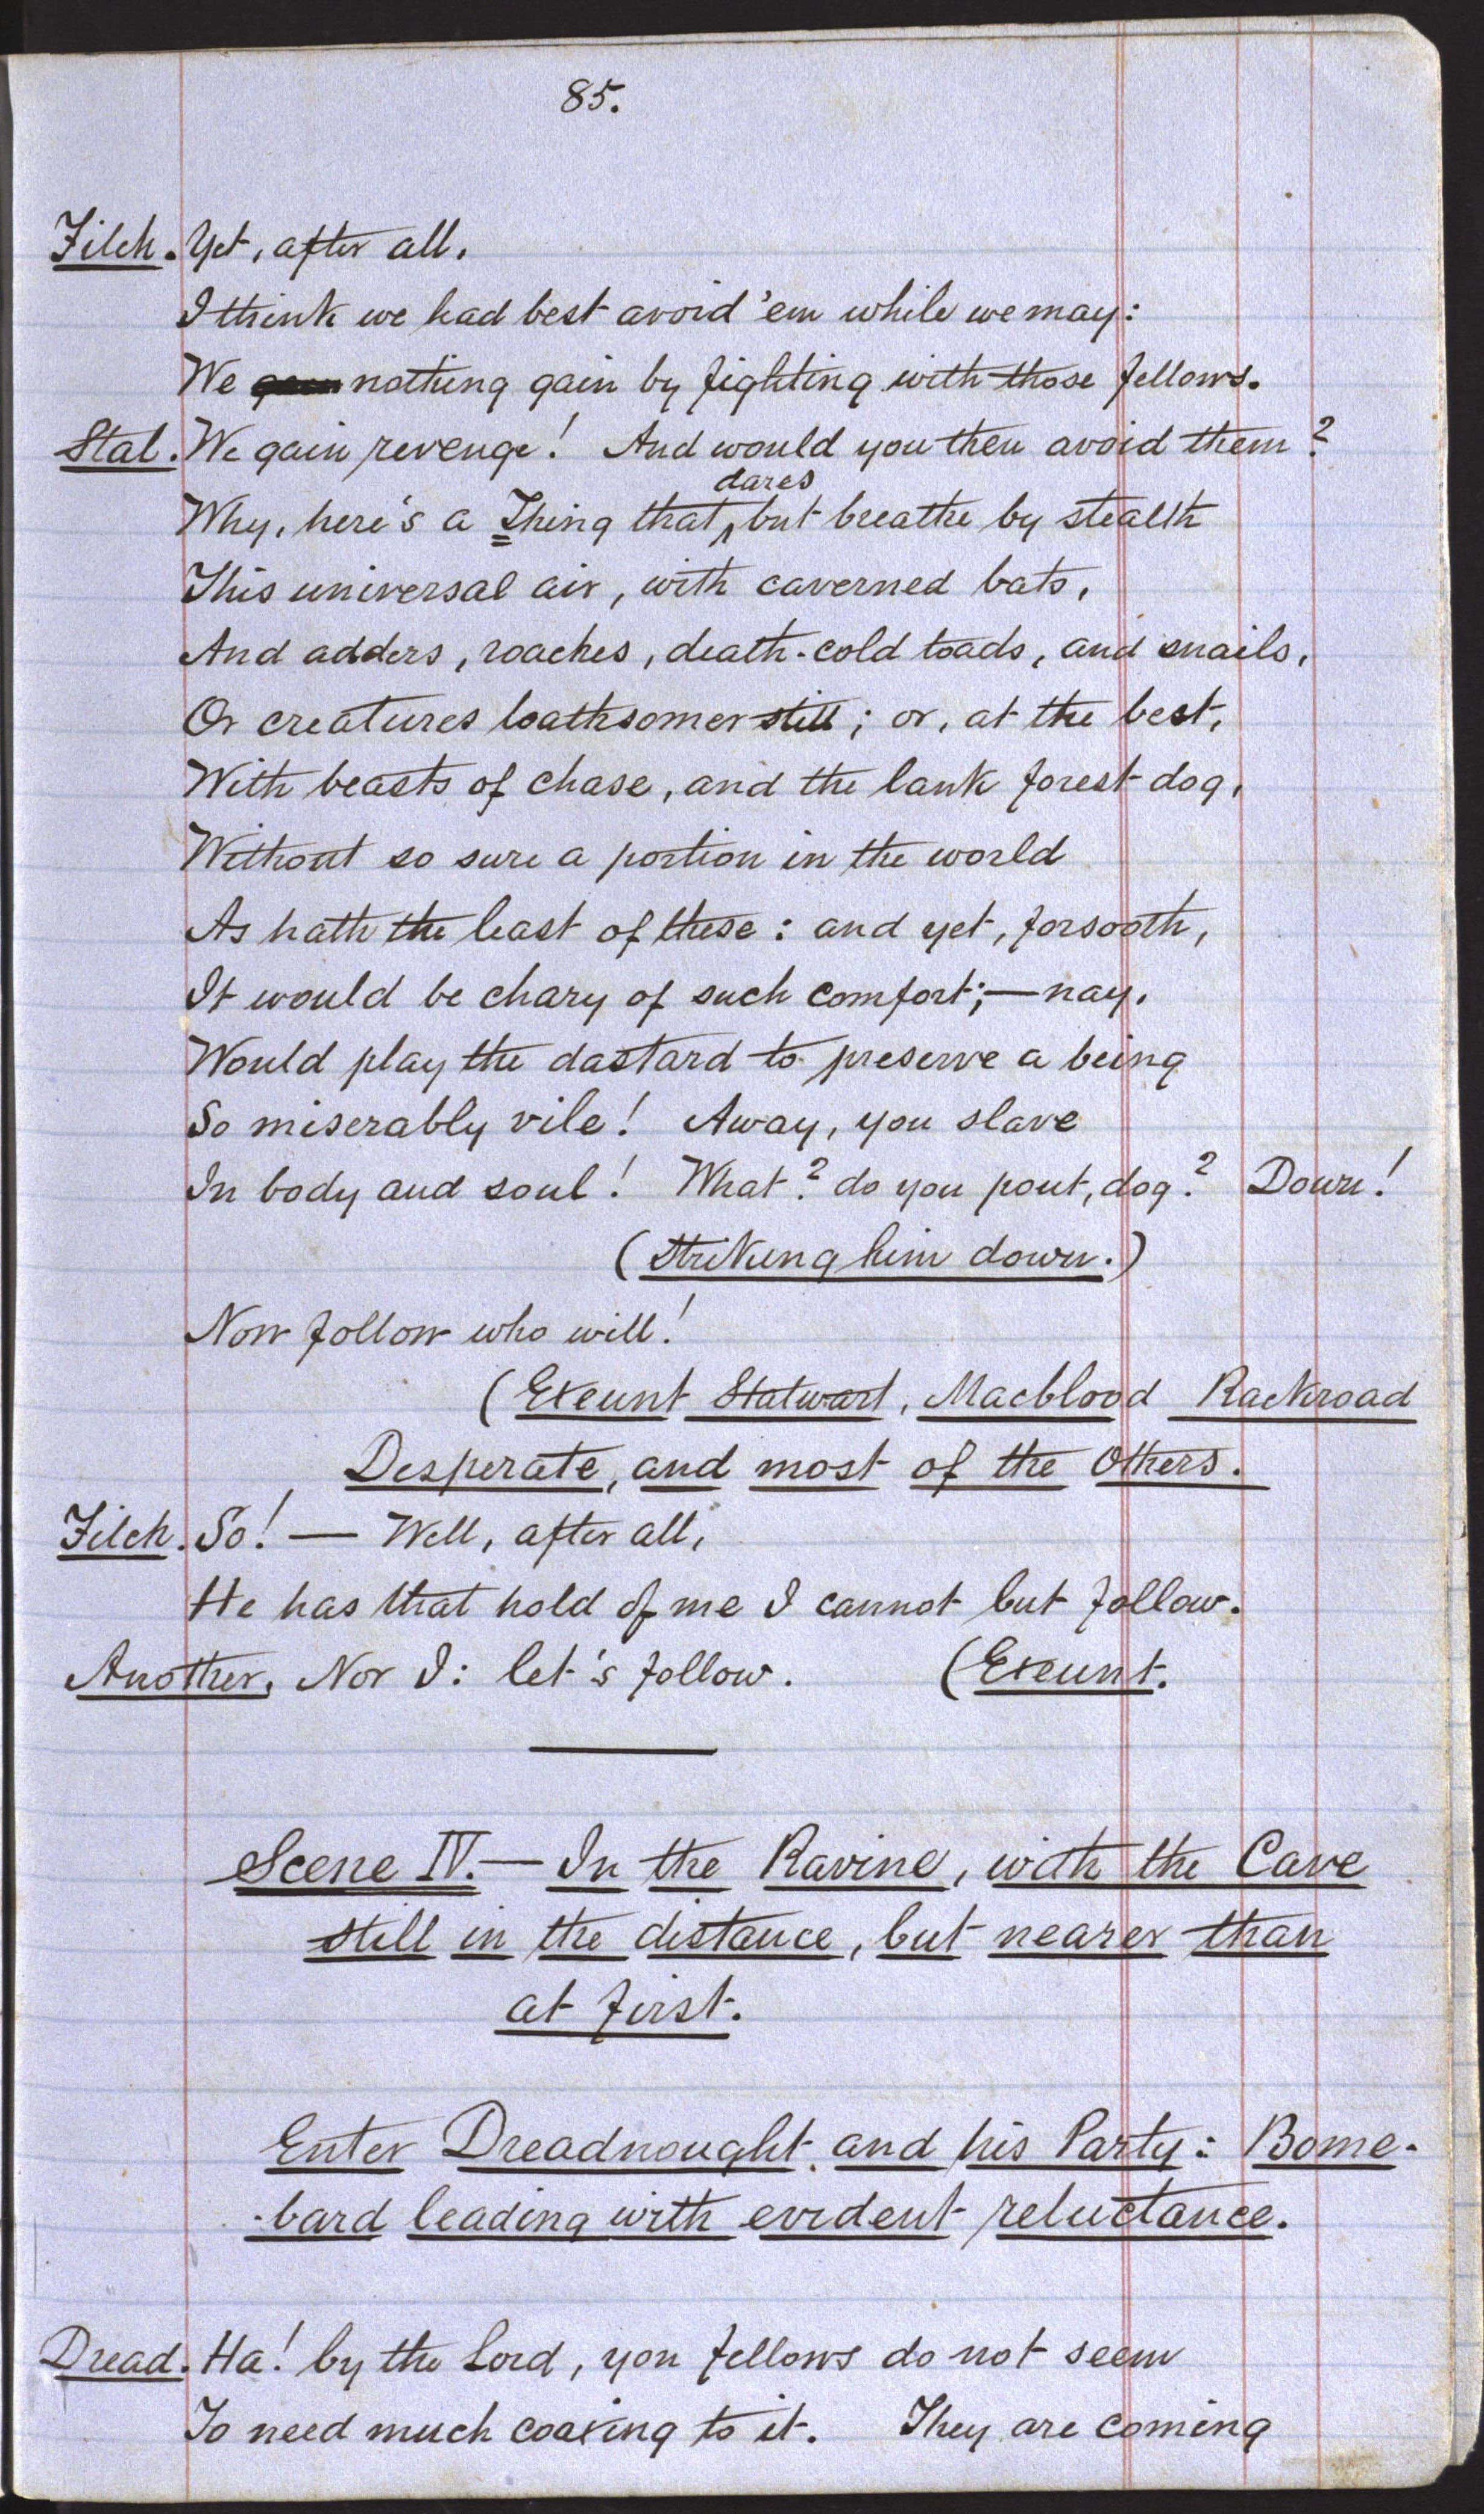 85.
Filch. Yet, after all,
I think we had best avoid 'em while we may:
We nothing gain by fighting with those fellows.
Stal. We gain revenge! And would you then avoid them?
dares
Why, here's a Thing that but breathe by stealth
This universal air, with caverned bats,
And adders, roaches, death-cold toads, and snails,
Or creatures loathsomer still; or, at the best,
With beasts of chase, and the lank forest dog,
Without so sure a portion in the world
As hath the least of these: and yet, forsooth,
It would be chary of such comfort;—nay,
Would play the dastard to preserve a being
So miserably vile! Away, you slave
In body and soul! What? do you pout, dog? Down!
(Striking him down.)
Now follow who will!
(Exeunt Stalwart, Macblood Rackroad
Desperate, and most of the Others.
Filch. So! — Well, after all,
He has that hold of me I cannot but follow.
Another. Nor I: let's follow. (Exeunt.
Scene IV.— In the Ravine, with the Cave
still in the distance, but nearer than
at first.
Enter Dreadnought and his Party: Bome-
-bard leading with evident reluctance.
Dread. Ha! by the Lord, you fellows do not seem
To need much coaxing to it. They are coming